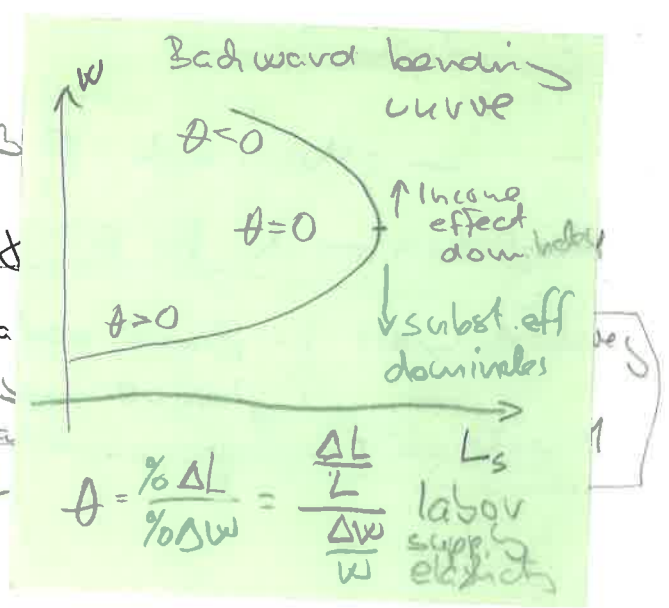 Backward bending
curve
w
θ<0
θ=0
↑ Income
effect
dom.
θ>0
↓ subst. eff
dominates
θ = %ΔL / %Δw = (ΔL/L) / (Δw/w)
Ls
labor
supply
elasticity